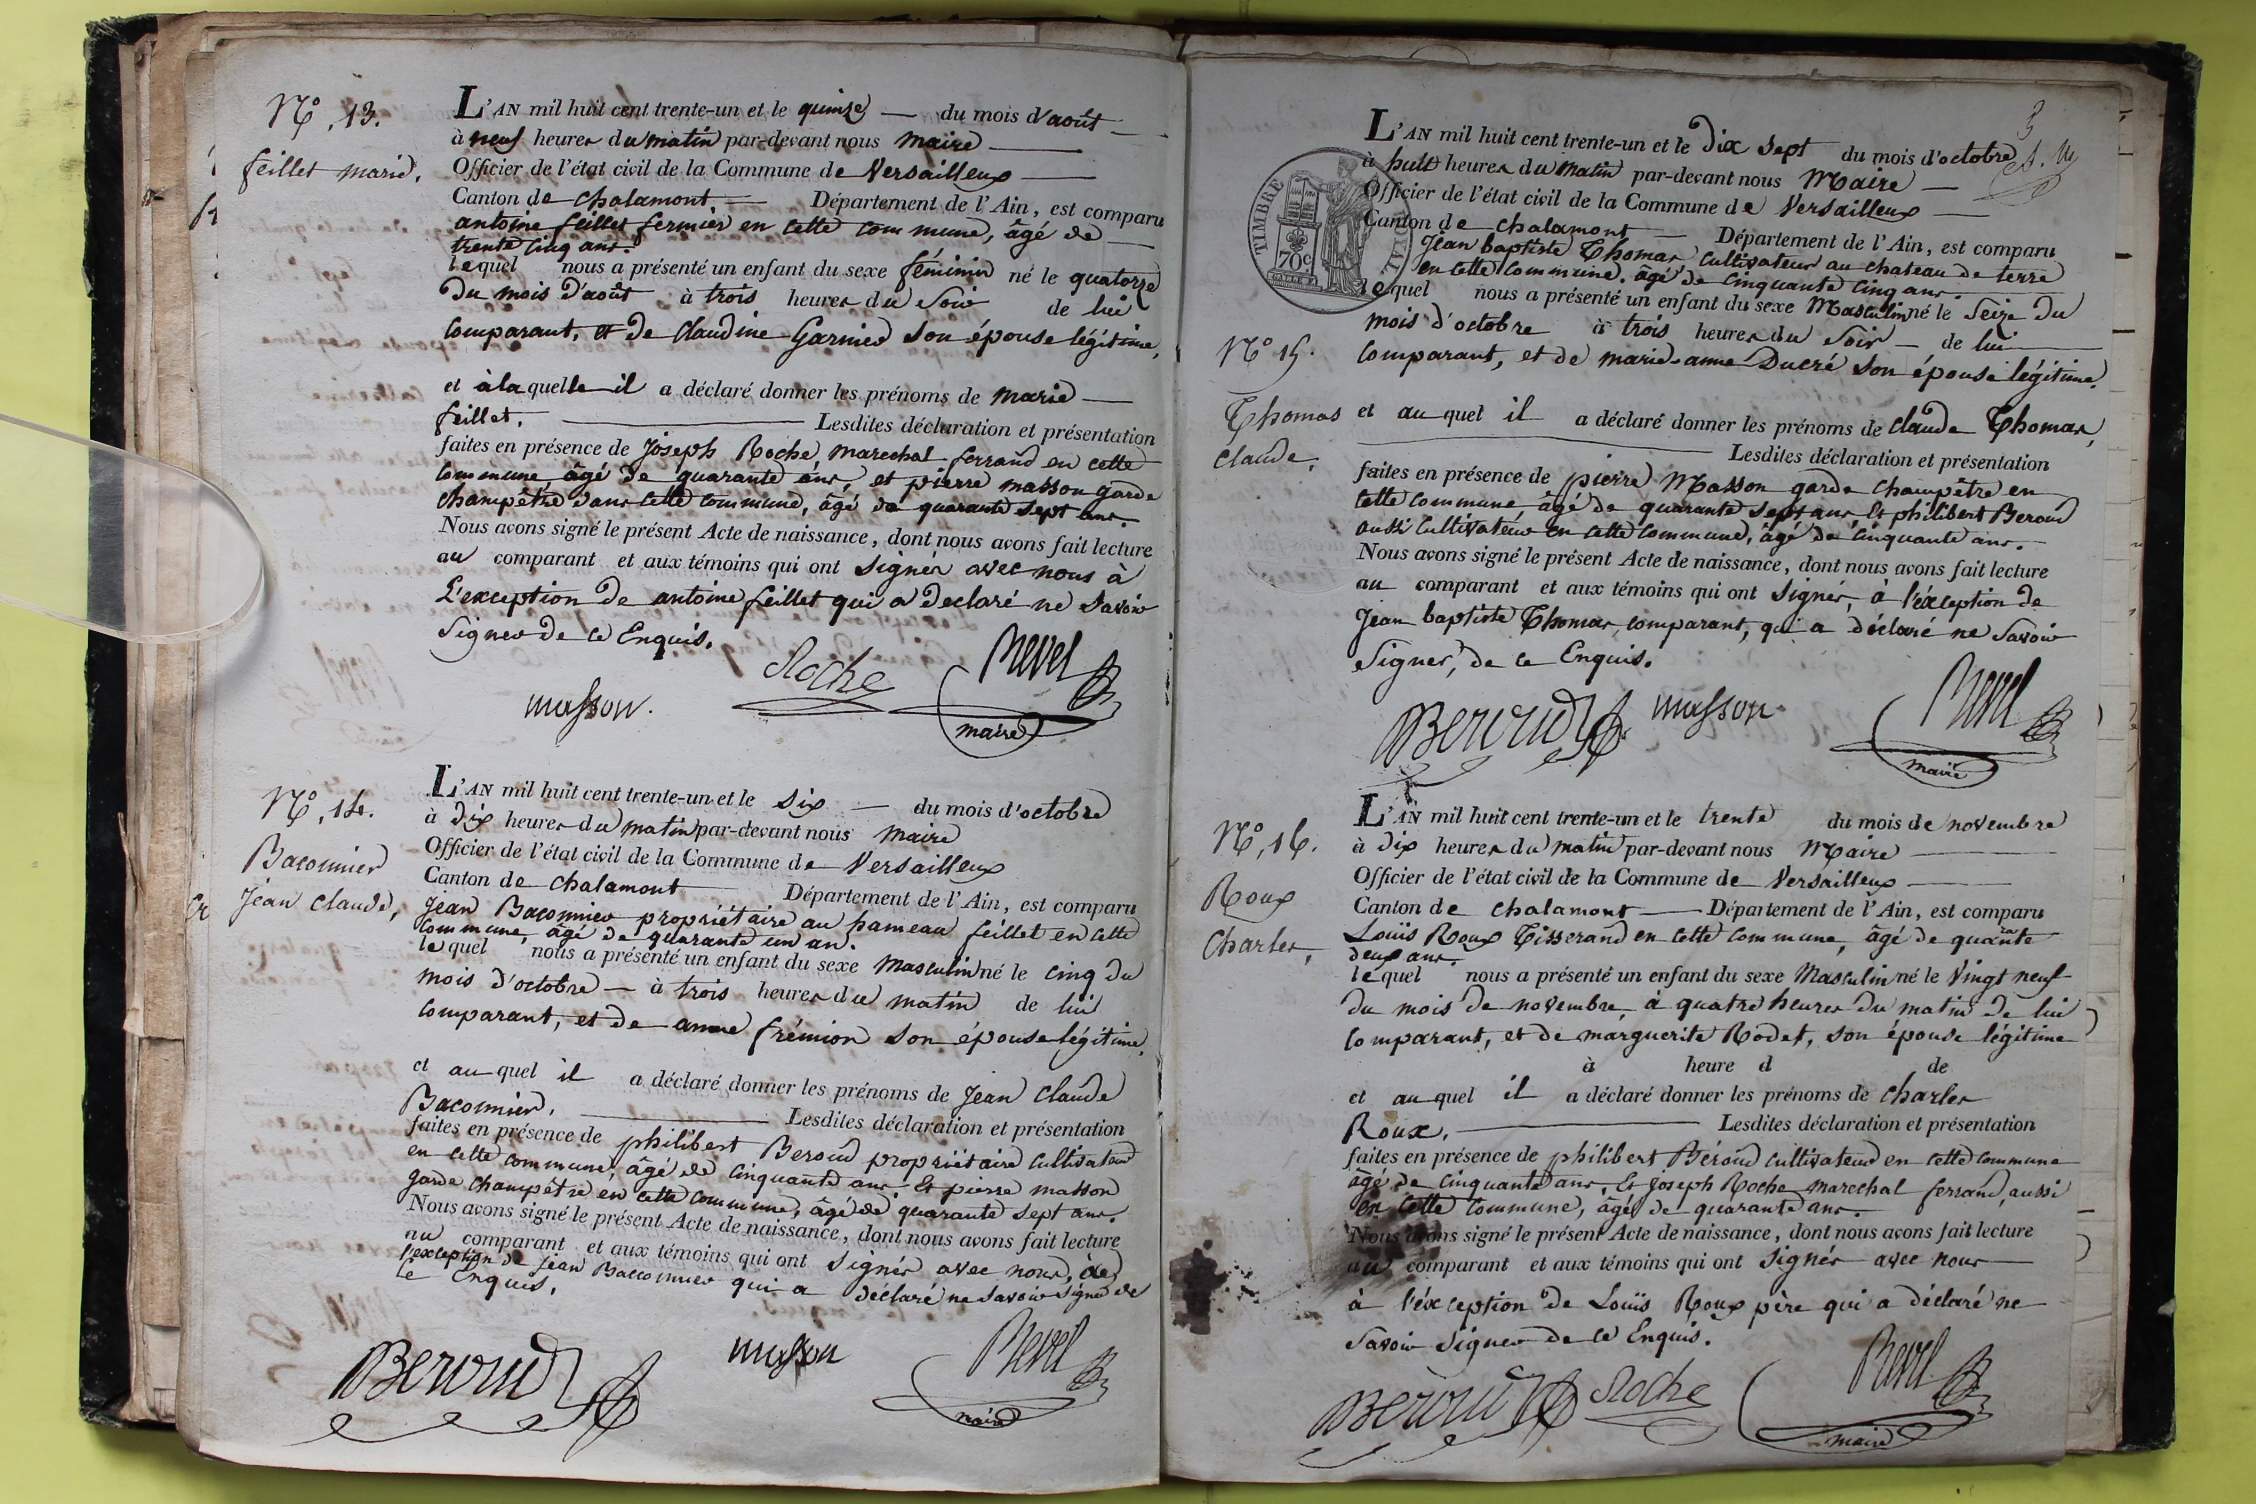 N.° 13.
feillet marie,
L'AN mil huit cent trente-un et le quinze — du mois d'août —
à neuf heures du matin par-devant nous maire —
Officier de l'état civil de la Commune de Versailleux —
Canton de chalamont — Département de l'Ain, est comparu
antoine feillet fermier en cette commune, âgé de —
trente cinq ans.
lequel nous a présenté un enfant du sexe féminin né le quatorze
du mois d'août à trois heures du soir de lui
comparant, et de claudine Garnier son épouse légitime,
et à laquelle il a déclaré donner les prénoms de marie —
feillet. — Lesdites déclaration et présentation
faites en présence de Joseph Roche, marechal ferrand en cette
commune, âgé de quarante ans, et pierre masson garde
champêtre dans cette commune, âgé de quarante sept ans.
Nous avons signé le présent Acte de naissance, dont nous avons fait lecture
au comparant et aux témoins qui ont signés avec nous à
L'exception de antoine feillet qui a declaré ne savoir
signer de ce Enquis.
masson. Roche Revel
maire
N.° 14.
Baconnier
Jean claude,
L'AN mil huit cent trente-un et le six — du mois d'octobre
à dix heures du matin par-devant nous maire
Officier de l'état civil de la Commune de Versailleux
Canton de chalamont — Département de l'Ain, est comparu
Jean Baconnier propriétaire au hameau feillet en cette
commune, âgé de quarante un an.
lequel nous a présenté un enfant du sexe masculin né le cinq du
mois d'octobre — à trois heures du matin de lui
comparant, et de anne frémion son épouse légitime,
et au quel il a déclaré donner les prénoms de Jean claude
Baconnier. — Lesdites déclaration et présentation
faites en présence de philibert Beroud propriétaire cultivateur
en cette commune, âgé de cinquante ans, Et pierre masson
garde champêtre en cette commune, âgé de quarante sept ans.
Nous avons signé le présent Acte de naissance, dont nous avons fait lecture
au comparant et aux témoins qui ont signés avec nous,
l'exception de jean Baconnier qui a déclaré ne savoir signé de
ce Enquis.
Beroud masson Revel
maire
3
L'AN mil huit cent trente-un et le dix sept du mois d'octobre
à huit heures du matin par-devant nous Maire —
Officier de l'état civil de la Commune de Versailleux —
Canton de chalamont — Département de l'Ain, est comparu
Jean baptiste Thomas cultivateur au chateau de terre
en cette commune. âgé de cinquante cinq ans.
lequel nous a présenté un enfant du sexe Masculin né le seize du
mois d'octobre à trois heures du soir — de lui
comparant, et de marie-anne Ducré son épouse légitime.
TIMBRE ROYAL
70c
N.° 15.
Thomas
claude,
et au quel il a déclaré donner les prénoms de claude Thomas,
— Lesdites déclaration et présentation
faites en présence de pierre Masson garde champêtre en
cette commune, âgé de quarante sept ans, Et philibert Beroud
aussi cultivateur en cette commune, âgé de cinquante ans.
Nous avons signé le présent Acte de naissance, dont nous avons fait lecture
au comparant et aux témoins qui ont signés, à l'éxception de
Jean baptiste Thomas, comparant, qui a déclaré ne savoir
signer, de ce Enquis.
Beroud masson Revel
maire
N.° 16.
Roux
Charles,
L'AN mil huit cent trente-un et le trente du mois de novembre
à dix heures du matin par-devant nous Maire —
Officier de l'état civil de la Commune de Versailleux —
Canton de chalamont — Département de l'Ain, est comparu
Louis Roux Tisserand en cette commune, âgé de quarante
deux ans.
lequel nous a présenté un enfant du sexe Masculin né le Vingt neuf
du mois de novembre, à quatre heures du matin de lui
comparant, et de marguerite Rodet, son épouse légitime
à heure d de
et au quel il a déclaré donner les prénoms de charles
Roux. — Lesdites déclaration et présentation
faites en présence de philibert Béroud cultivateur en cette commune
âgé de cinquante ans, Et joseph Roche marechal ferrand, aussi
en cette commune, âgé de quarante ans.
Nous avons signé le présent Acte de naissance, dont nous avons fait lecture
au comparant et aux témoins qui ont signés avec nous —
à l'éxception de Louis Roux père qui a déclaré ne
savoir signer de ce Enquis.
Beroud Roche Revel
maire